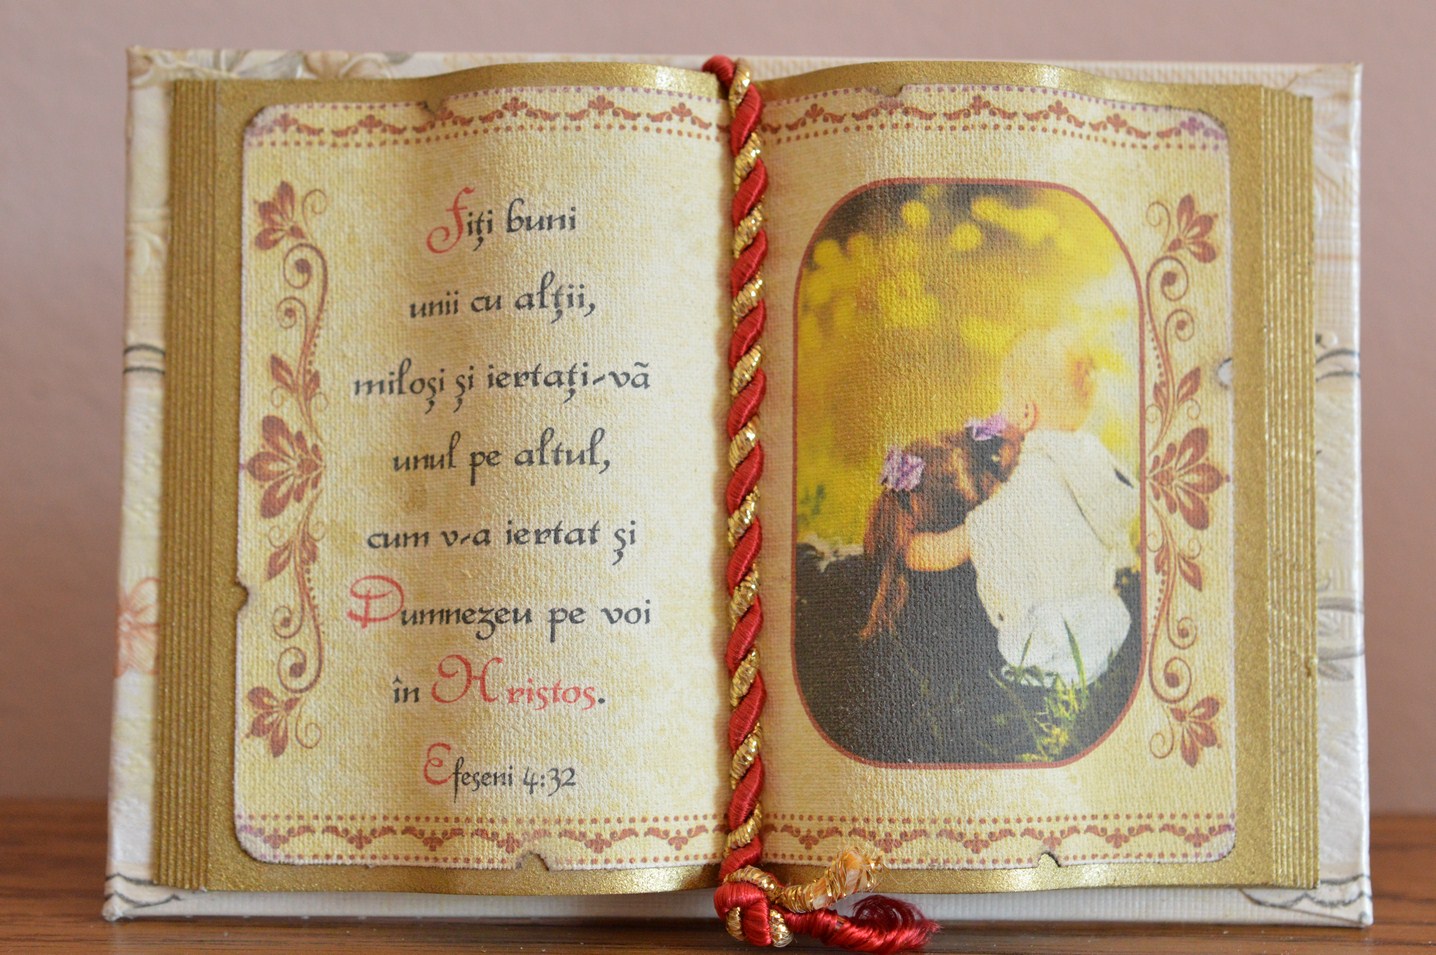 Fiți buni
unii cu alții,
miloși și iertați-vã
unul pe altul,
cum v-a iertat și
Dumnezeu pe voi
în Hristos.
Efeseni 4:32